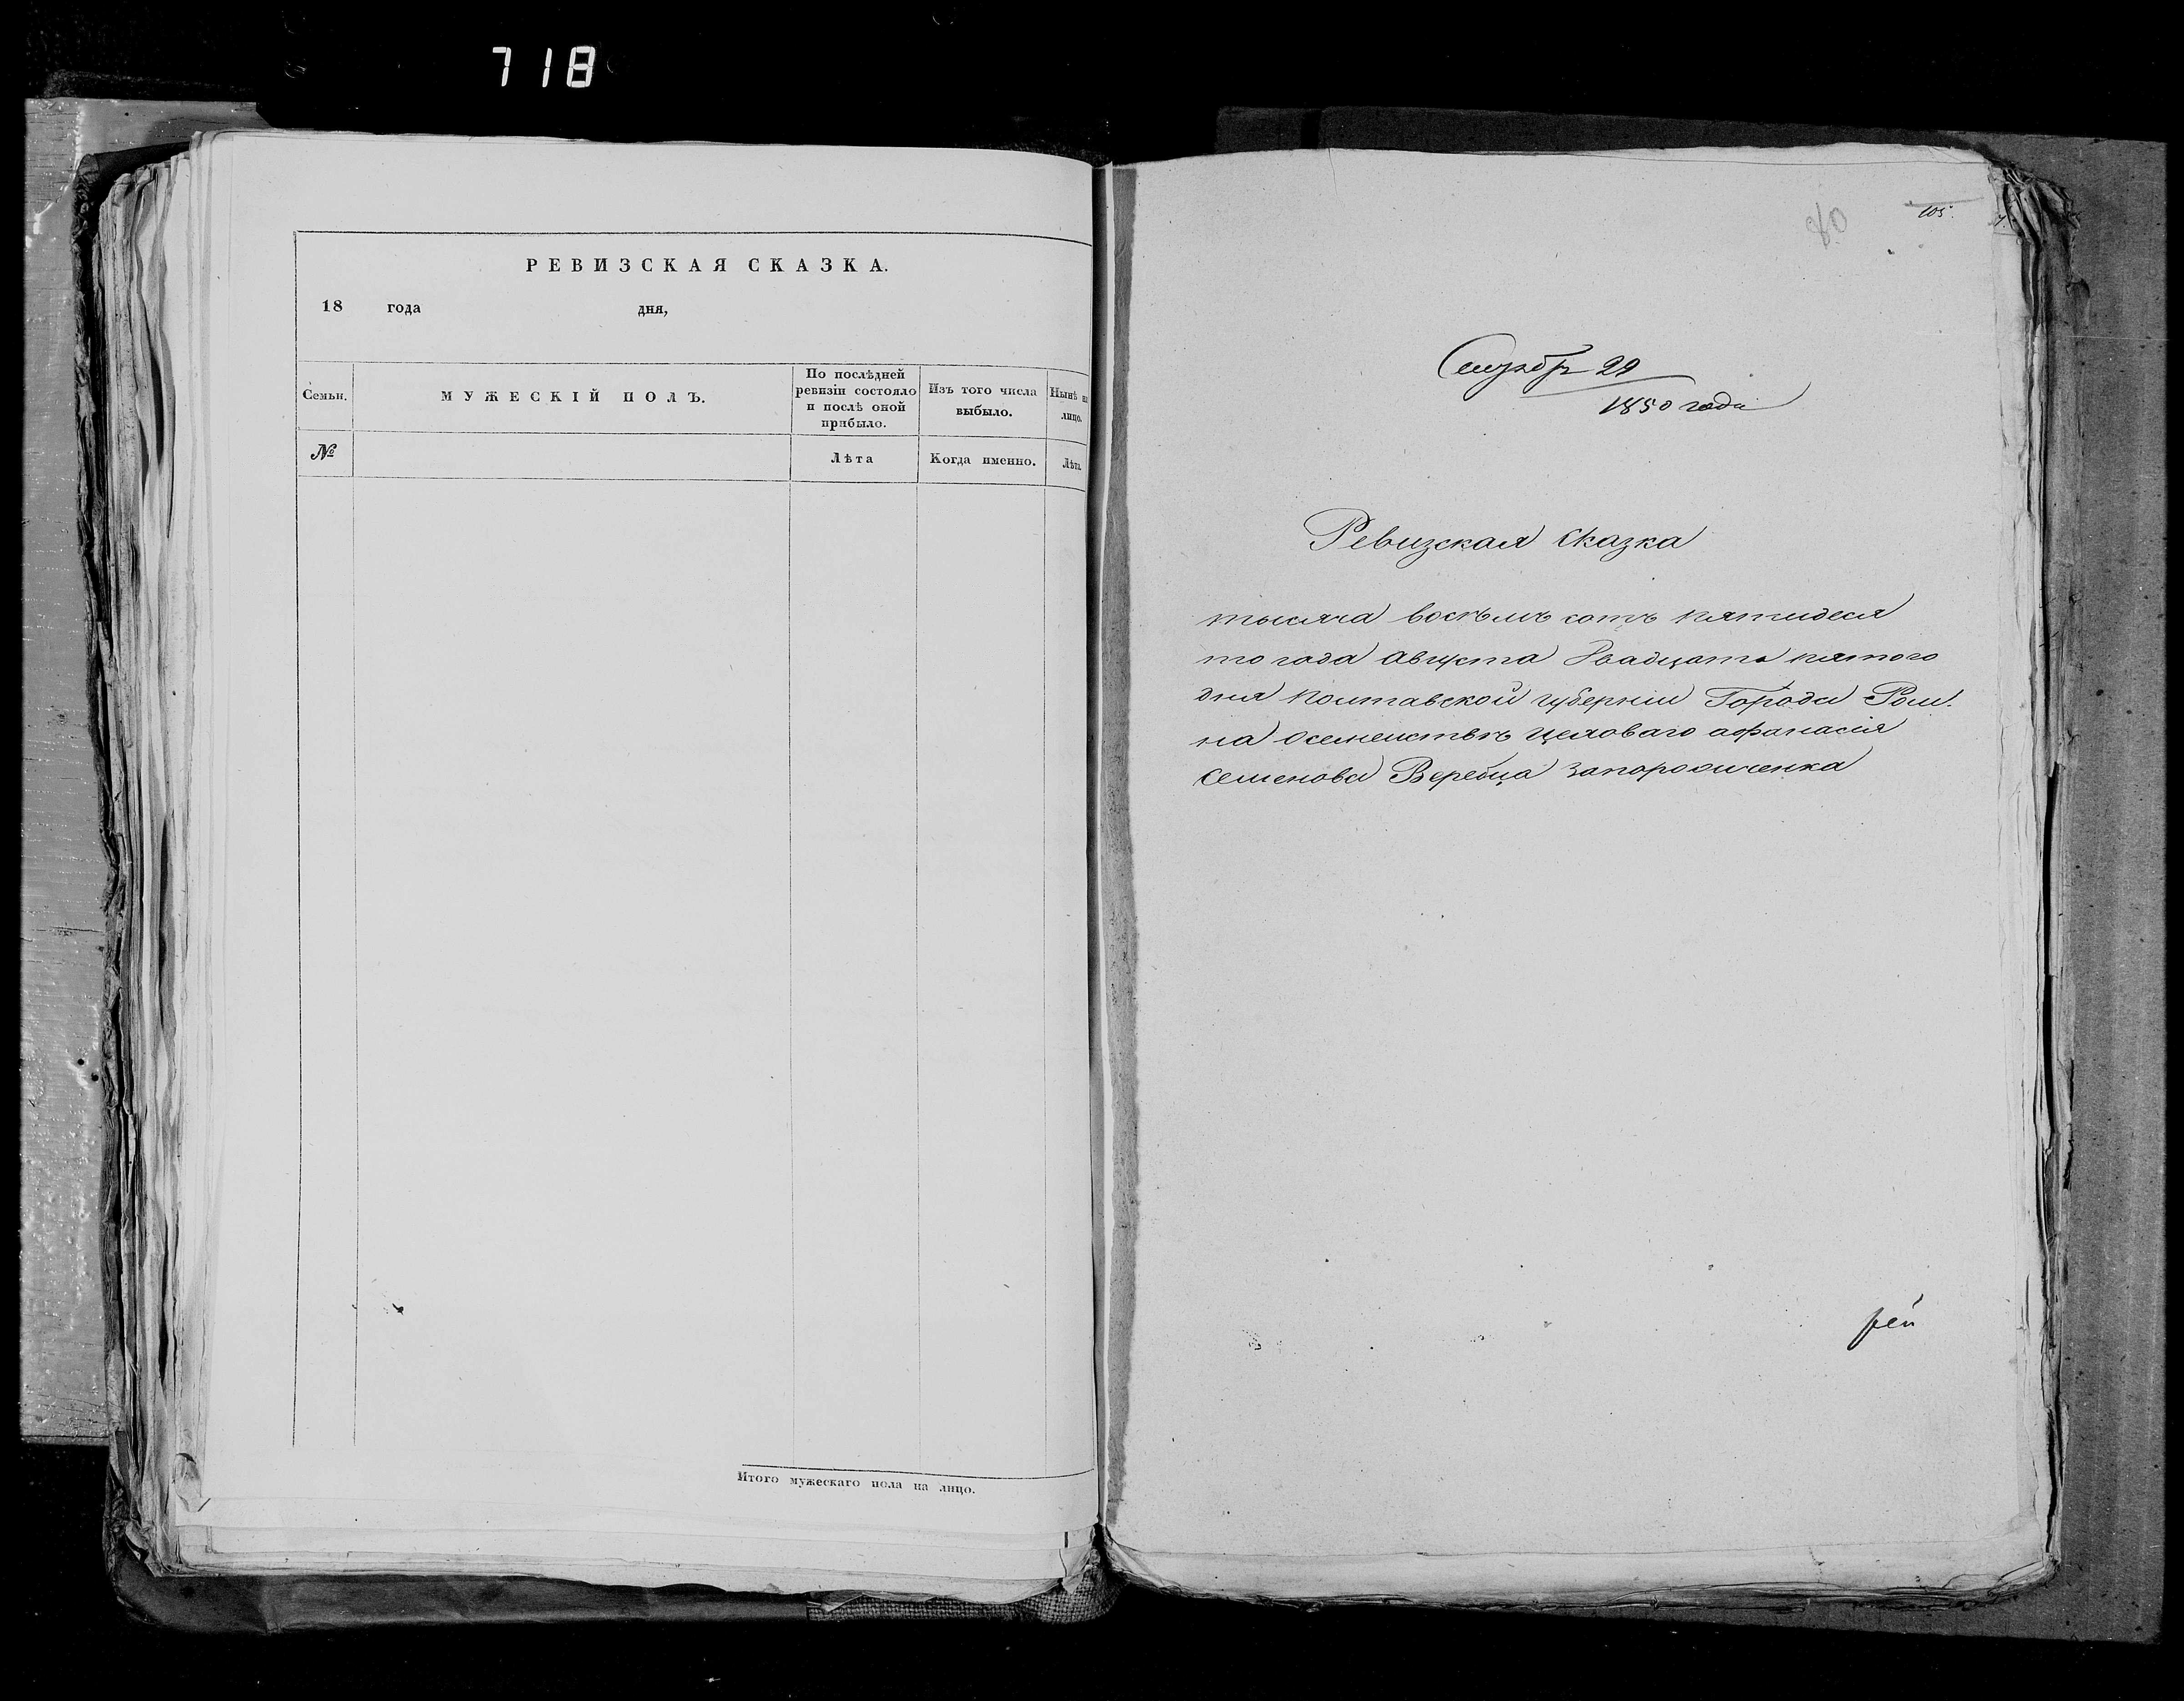 718
РЕВИЗСКАЯ СКАЗКА.
18 года дня,
Семьи.
МУЖЕСКІЙ ПОЛЪ.
По послѣдней
ревизіи состояло
и послѣ оной
прибыло.
Изъ того числа
выбыло.
Нынѣ на
лицо.
№
Лѣта
Когда именно.
Лѣта
Итого мужескаго пола на лицо.
80
105.
29
1850 года
Ревизская Сказка
тысяча восъмъ сотъ пятидеся
то года Августа двадцать пятого
дня Полтавской губерніи Города Ром.
на осемействѣ цеховаго афанасія
Семенова Веребца Запорожченка